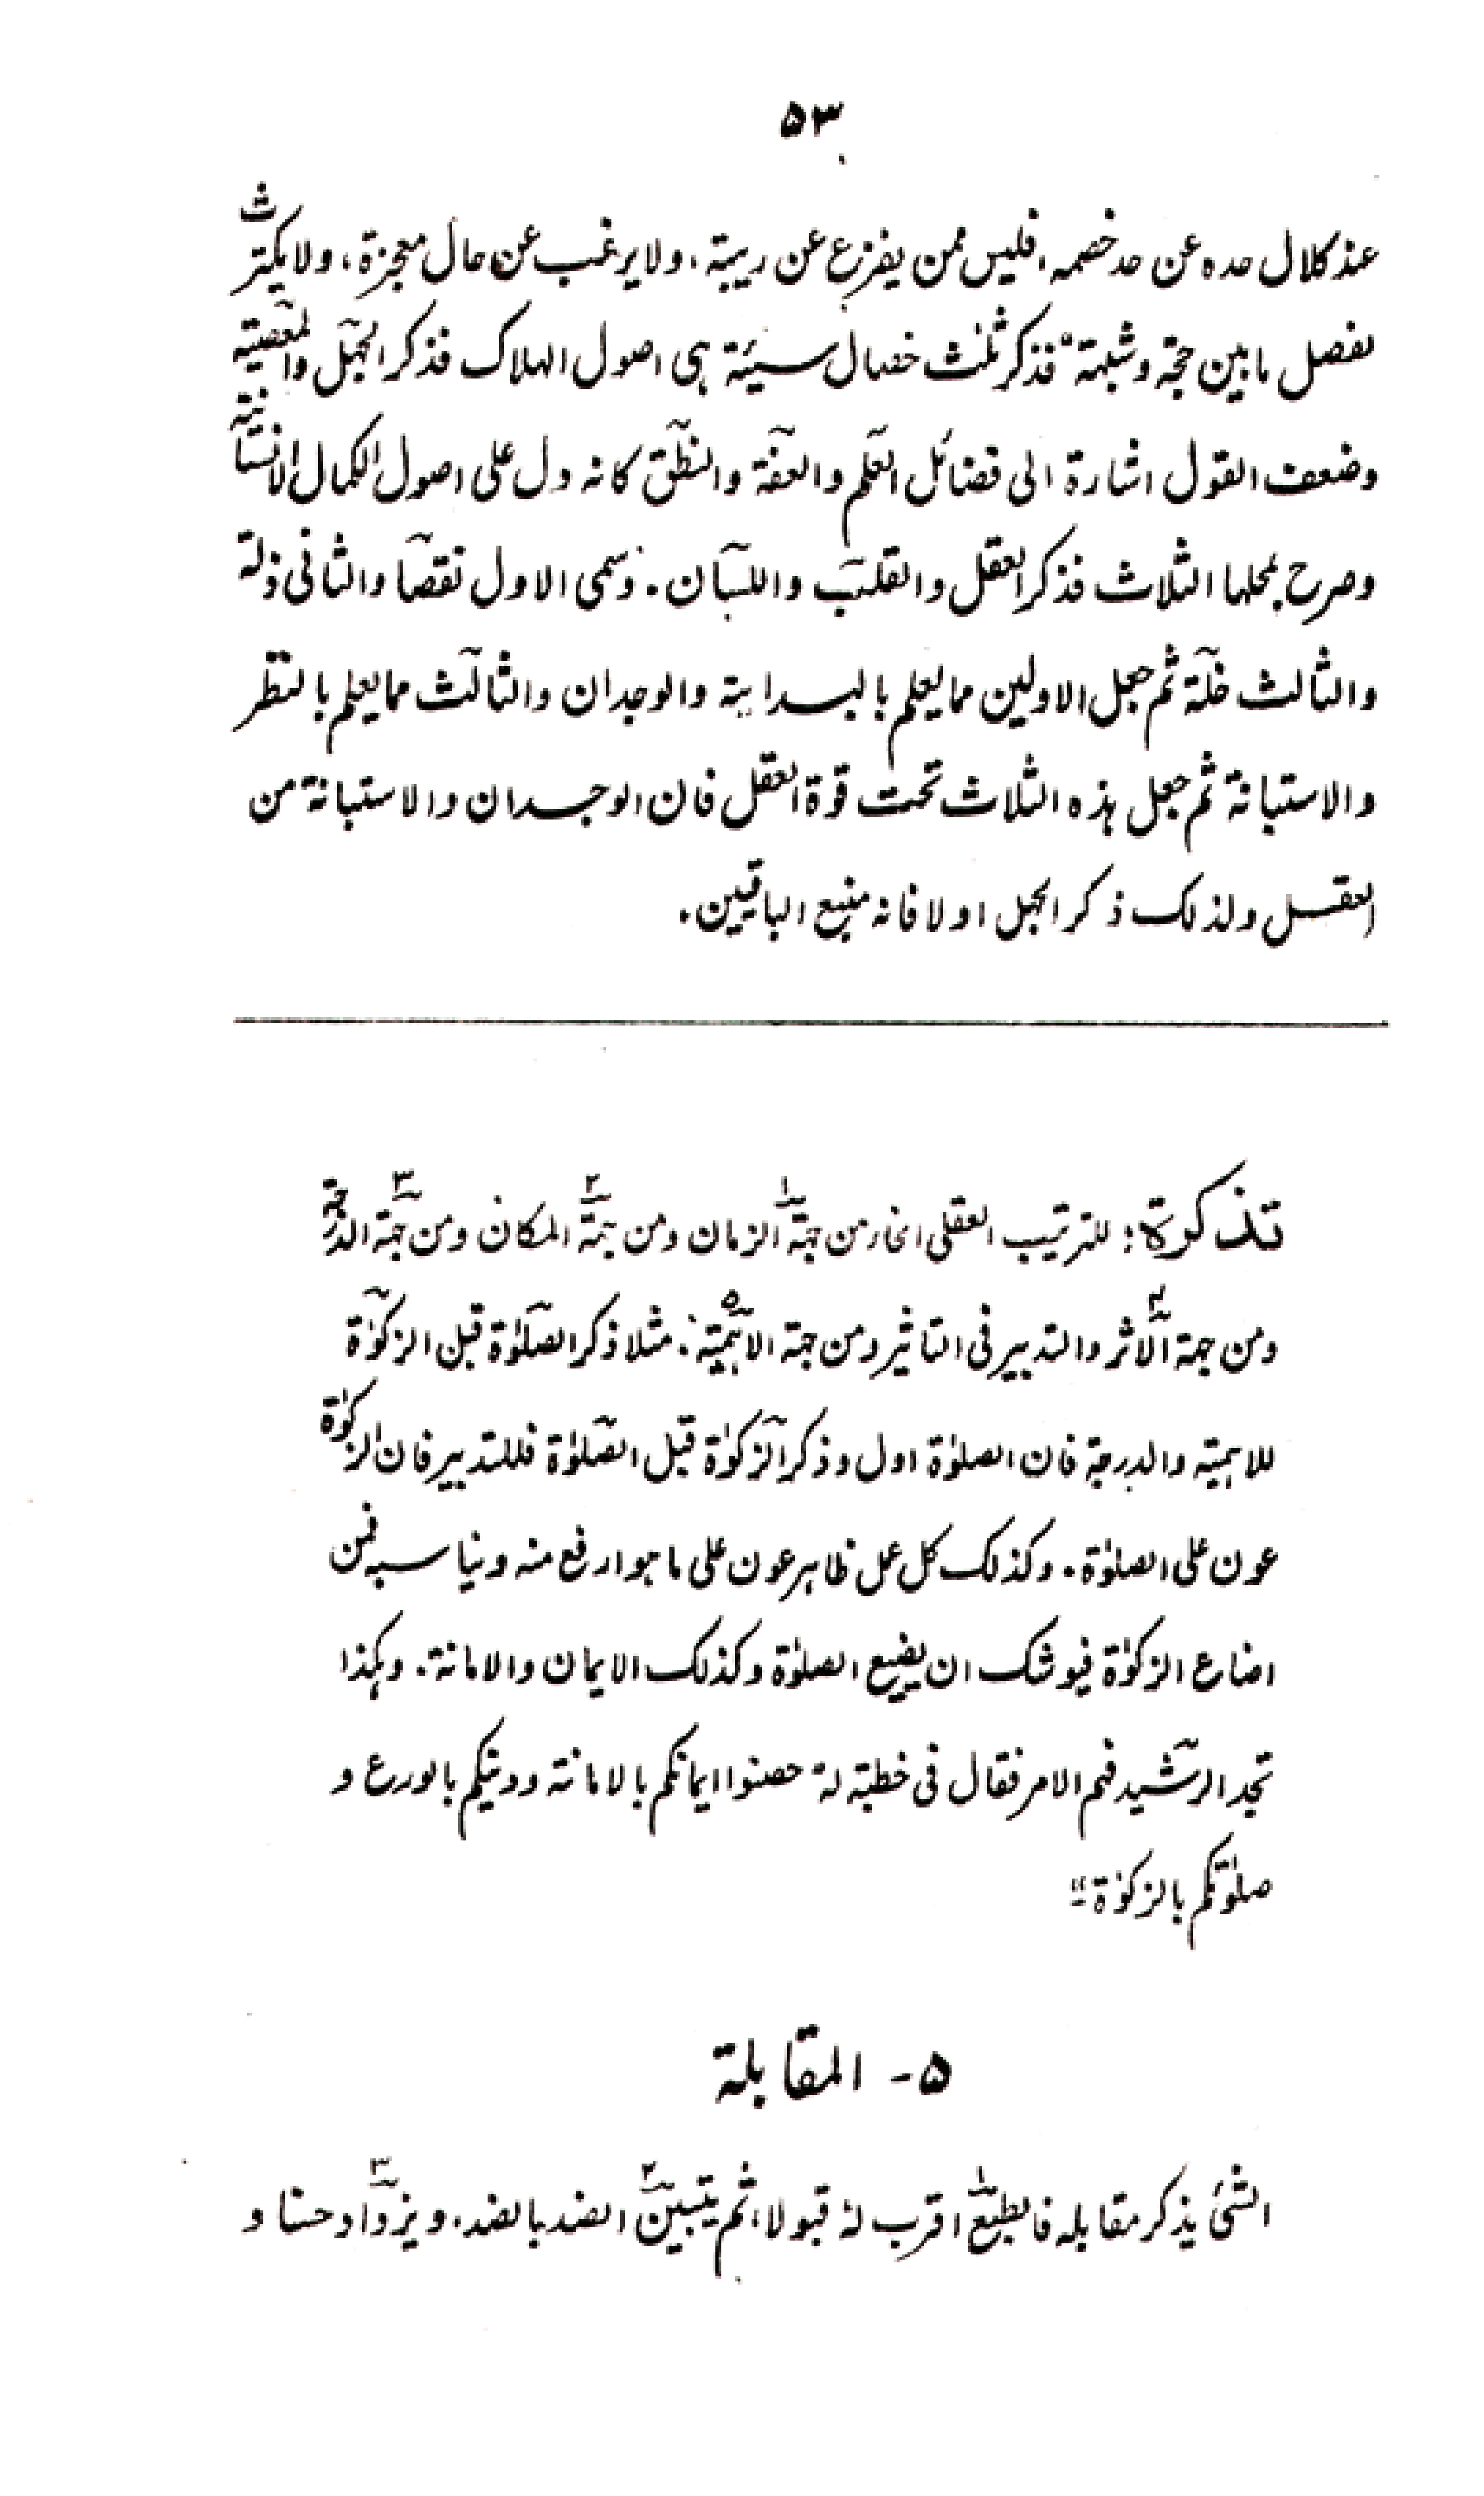 ۵۳
عند كلال حده عن حد خصمه، فليس ممن يفزع عن ريبة، ولا يرغب عن حال معجزة، ولا يكترث
لفصل ما بين حجة وشبهة" فذكر ثلث خصال سيئة هى اصول الهلاك فذكر الجهل والمعصية
وضعف القول اشارة الى فضائل العلم والعفة والنطق كانه دل على اصول الكمال الانسانية
وصرح بمحلها الثلاث فذكر العقل والقلب واللسان. وسمى الاول نقصا والثانى ذلة
والثالث خلة ثم جعل الاولين مما يعلم بالبداهة والوجدان والثالث مما يعلم بالنظر
والاستبانة ثم جعل هذه الثلاث تحت قوة العقل فان الوجدان والاستبانة من
العقل ولذلك ذكر الجهل اولا فانه منبع الباقيين.
تذكرة: للترتيب العقلى انحاء من جهة ١ الزمان ومن جهة ٢ المكان ومن جهة ٣ الدرجة
ومن جهة ٤ الاثر والتدبير فى التاثير ومن جهة الاهمية ٥. مثلا ذكر الصلوٰة قبل الزكوٰة
للاهمية والدرجة فان الصلوٰة اول وذكر الزكوٰة قبل الصلوٰة فللتدبير فان الزكوٰة
عون على الصلوٰة. وكذلك كل عمل ظاهر عون على ما هو ارفع منه ويناسبه فمن
اضاع الزكوٰة فيوشك ان يضيع الصلوٰة وكذلك الايمان والامانة. وهكذا
تجد الرشيد فهم الامر فقال فى خطبة لهٗ حصنوا ايمانكم بالامانة ودينكم بالورع و
صلوٰتكم بالزكوٰة"
۵- المقابلة
الشئ يذكر مقابله فالطبع ١ اقرب لهٗ قبولا، ثم يتبين ٢ الضد بالضد، ويزداد ٣ حسنا و